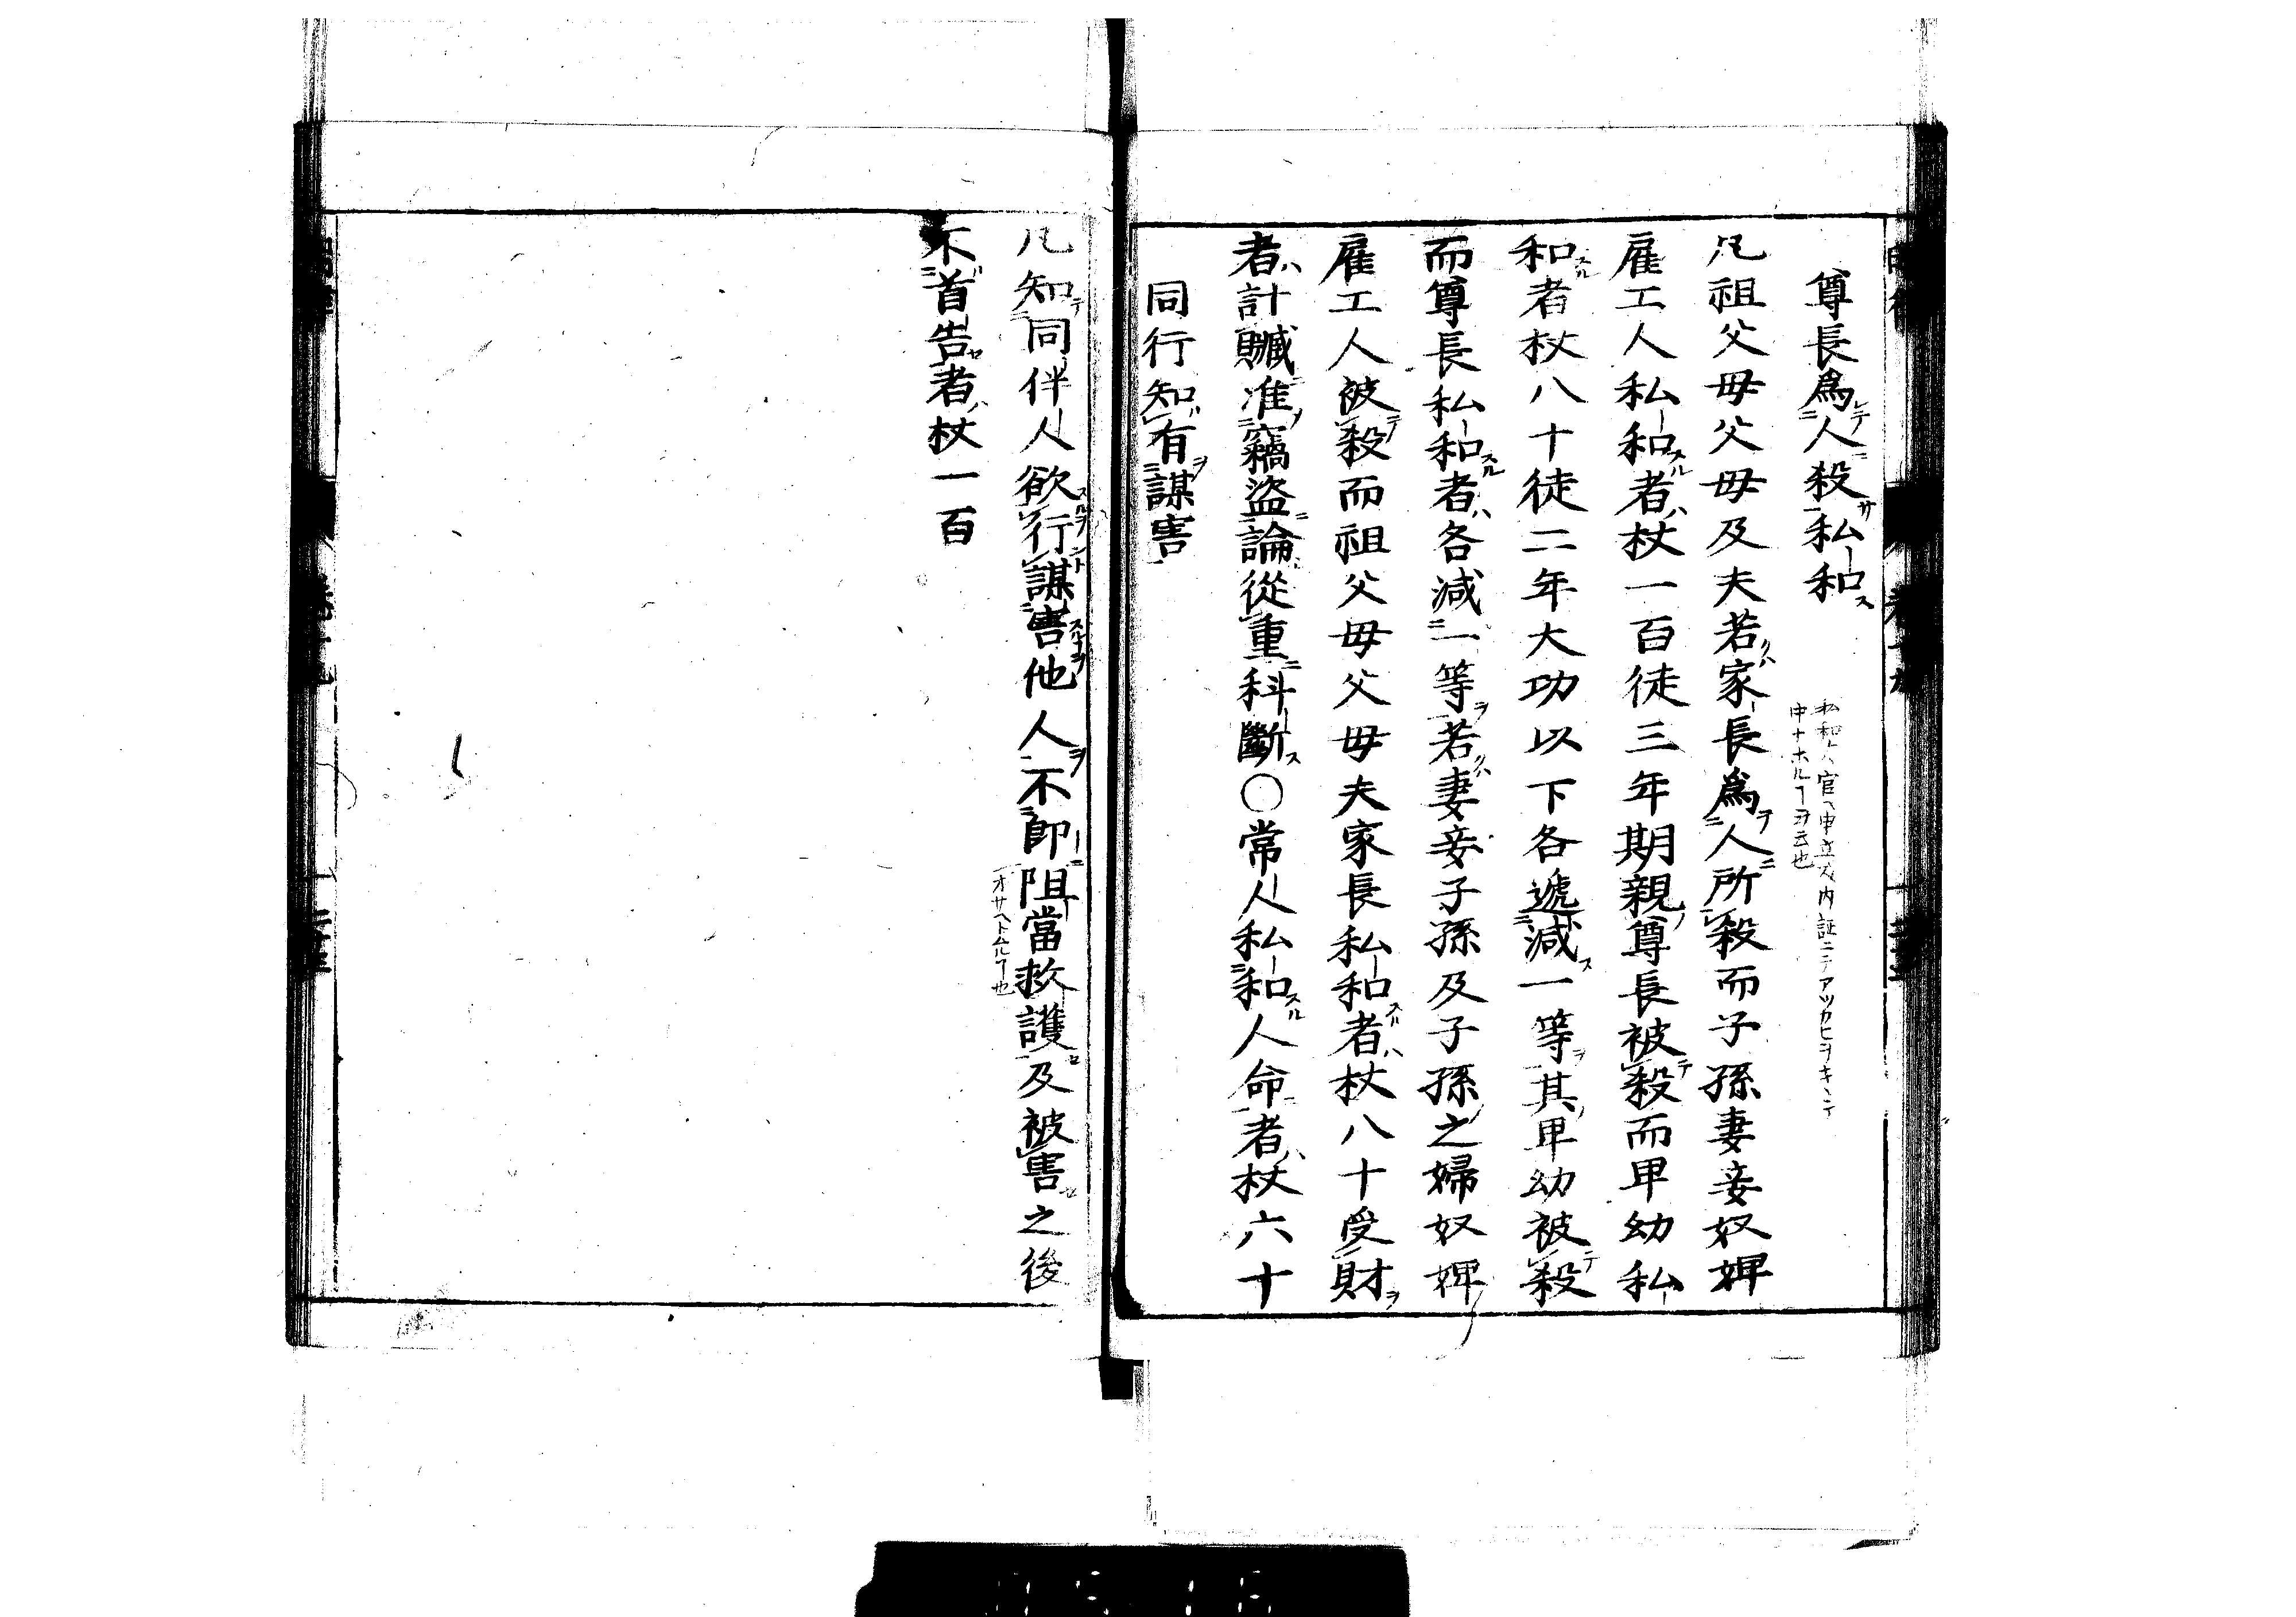 尊長爲人殺私和
私和ハ官ヘ申立ズ内証ニテアツカヒヲキヽテ
中ナホルヿヲ云也
凡祖父母父母及夫若家長爲人所殺而子孫妻妾奴婢
雇工人私和者杖一百徒三年期親尊長被殺而卑幼私
和者杖八十徒二年大功以下各遞減一等其卑幼被殺
而尊長私和者各減一等若妻妾子孫及子孫之婦奴婢
雇工人被殺而祖父母父母夫家長私和者杖八十受財
者計贓准竊盜論從重科斷○常人私和人命者杖六十
同行知有謀害
凡知同伴人欲行謀害他人不即阻當救護及被害之後
オサヘトムルヿ也
不首告者杖一百